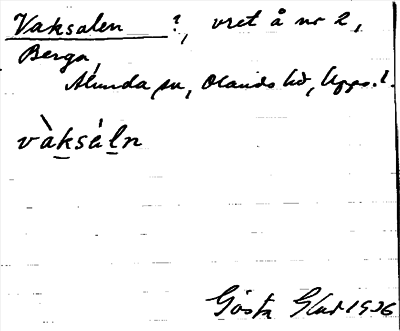 Vaksalen ?, vret å nr 2,
Berga,
Alunda sn, Olands hd, Upps. l.
vàksáln
Gösta Glad 1926